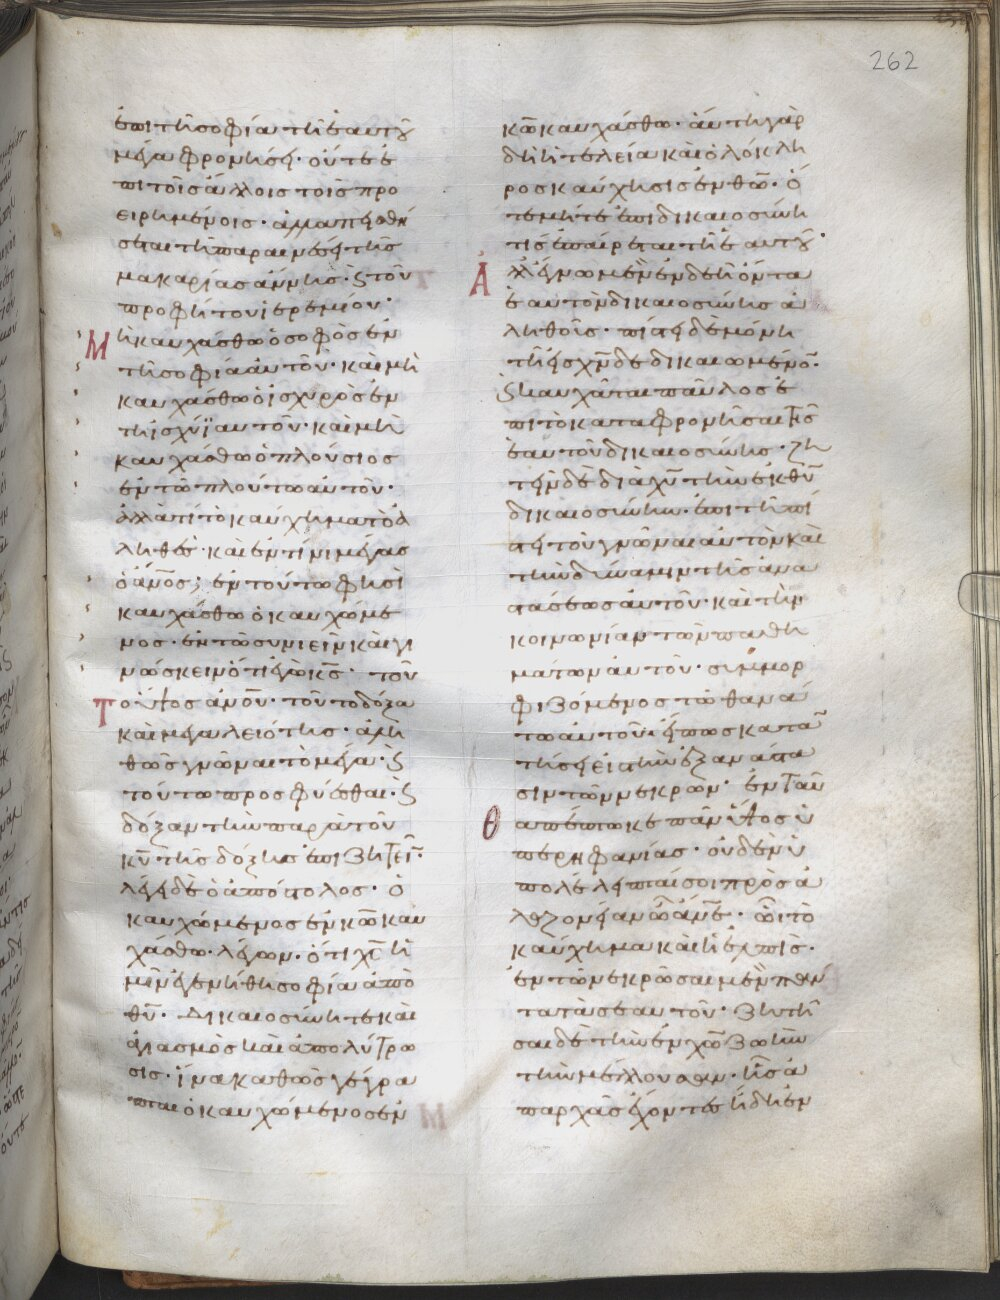 262
ἐπι τῆ σοφία τῆ ἑαυτοῦ
μέγα φρονήσει· οὔτε ἐ
πι τοῖς ἄλλοις τοῖς προ
ειρημένοις· ἀλλὰ πεισθή
σεται τῆ παραινέσει τῆς
μακαρίας ἄννης· ϗ τοῦ
προφήτου ἱερεμίου·
Μὴ καυχάσθω ὁ σοφὸς ἐν
τῆ σοφία αὐτοῦ· καὶ μὴ
καυχάσθω ὁ ἰσχυρὸς ἐν
τῆ ἰσχύϊ αὐτοῦ· καὶ μὴ
καυχάσθω ὁ πλούσιος
ἐν τῶ πλούτω αὐτοῦ·
ἀλλὰ τί τὸ καύχημα τὸ ἀ
ληθὲς· καὶ ἐν τίνι μέγας
ὁ ἄνος; ἐν τούτω φησὶ
καυχάσθω ὁ καυχώμε
νος· ἐν τῶ συνιεῖν καὶ γι
νώσκειν ὅτι ἐγώ κς· τοῦ
Το ὕψος ἀνου· τοῦτο δόξα
καὶ μεγαλειότης· ἀλη
θῶς γνῶναι τὸ μέγα· ϗ
τούτω προσφύεσθαι· ϗ
δόξαν τὴν παρὰ τοῦ
κυ τῆς δόξης ἐπιζητεῖν·
λέγει δὲ ὁ ἀπόστολος· ὁ
καυχώμενος ἐν κω καυ
χάσθω· λέγων· ὅτι χς ἡ
μῖν ἐγενήθη σοφία ἀπὸ
θυ· δικαιοσύνη τε καὶ
ἁγιασμὸς καὶ ἀπολύτρω
σις· ἵνα καθὼς γέγρα
πται ὁ καυχώμενος ἐν
κω καυχάσθω· αὕτη γὰρ
δὴ ἡ τελεία καὶ ὁλόκλη
ρος καύχησις ἐν θω· ὅ
τε μήτε ἐπὶ δικαιοσύνη
τις ἐπαίρεται τῆ ἑαυτοῦ·
Ἀλλ' ἔγνω μὲν ἐνδεῆ ὄντα
ἑαυτὸν δικαιοσύνης ἀ
ληθοῦς· πίστει δὲ μόνη
τῆ εἰς χν δεδικαιωμένον·
ϗ καυχᾶται παῦλος ἐ
πὶ τὸ καταφρονῆσαι τῆς
ἑαυτοῦ δικαιοσύνης· ζη
τεῖν δὲ διὰ χυ τὴν ἐκ θυ
δικαιοσύνην· ἐπὶ τῆ πί
στει τοῦ γνῶναι αὐτὸν καὶ
τὴν δύναμιν τῆς ἀνα
στάσεως αὐτοῦ· καὶ τὴν
κοινωνίαν τῶν παθη
μάτων αὐτοῦ· συμμορ
φιζόμενος τῶ θανά
τω αὐτοῦ· εἴ πως καταν
τήσει εἰς τὴν ἐξανάστα
σιν τῶν νεκρῶν· ἐνταῦ
θα πέπτωκε πᾶν ὕψος ὑ
περηφανίας· οὐδὲν ὑ
πολέλειπταί σοι πρὸς ἀ
λαζονείαν ὦ ἄνε· ὧ τὸ
καύχημα καὶ ἡ ἐλπὶς·
ἐν τῶ νεκρῶσαι μὲν πάν
τα τὰ σεαυτοῦ· ζητῆ
σαι δὲ τὴν ἐν χω ζωὴν
τὴν μέλλουσαν· ἧς ἀ
παρχὰς ἔχοντες ἤδη ἐν